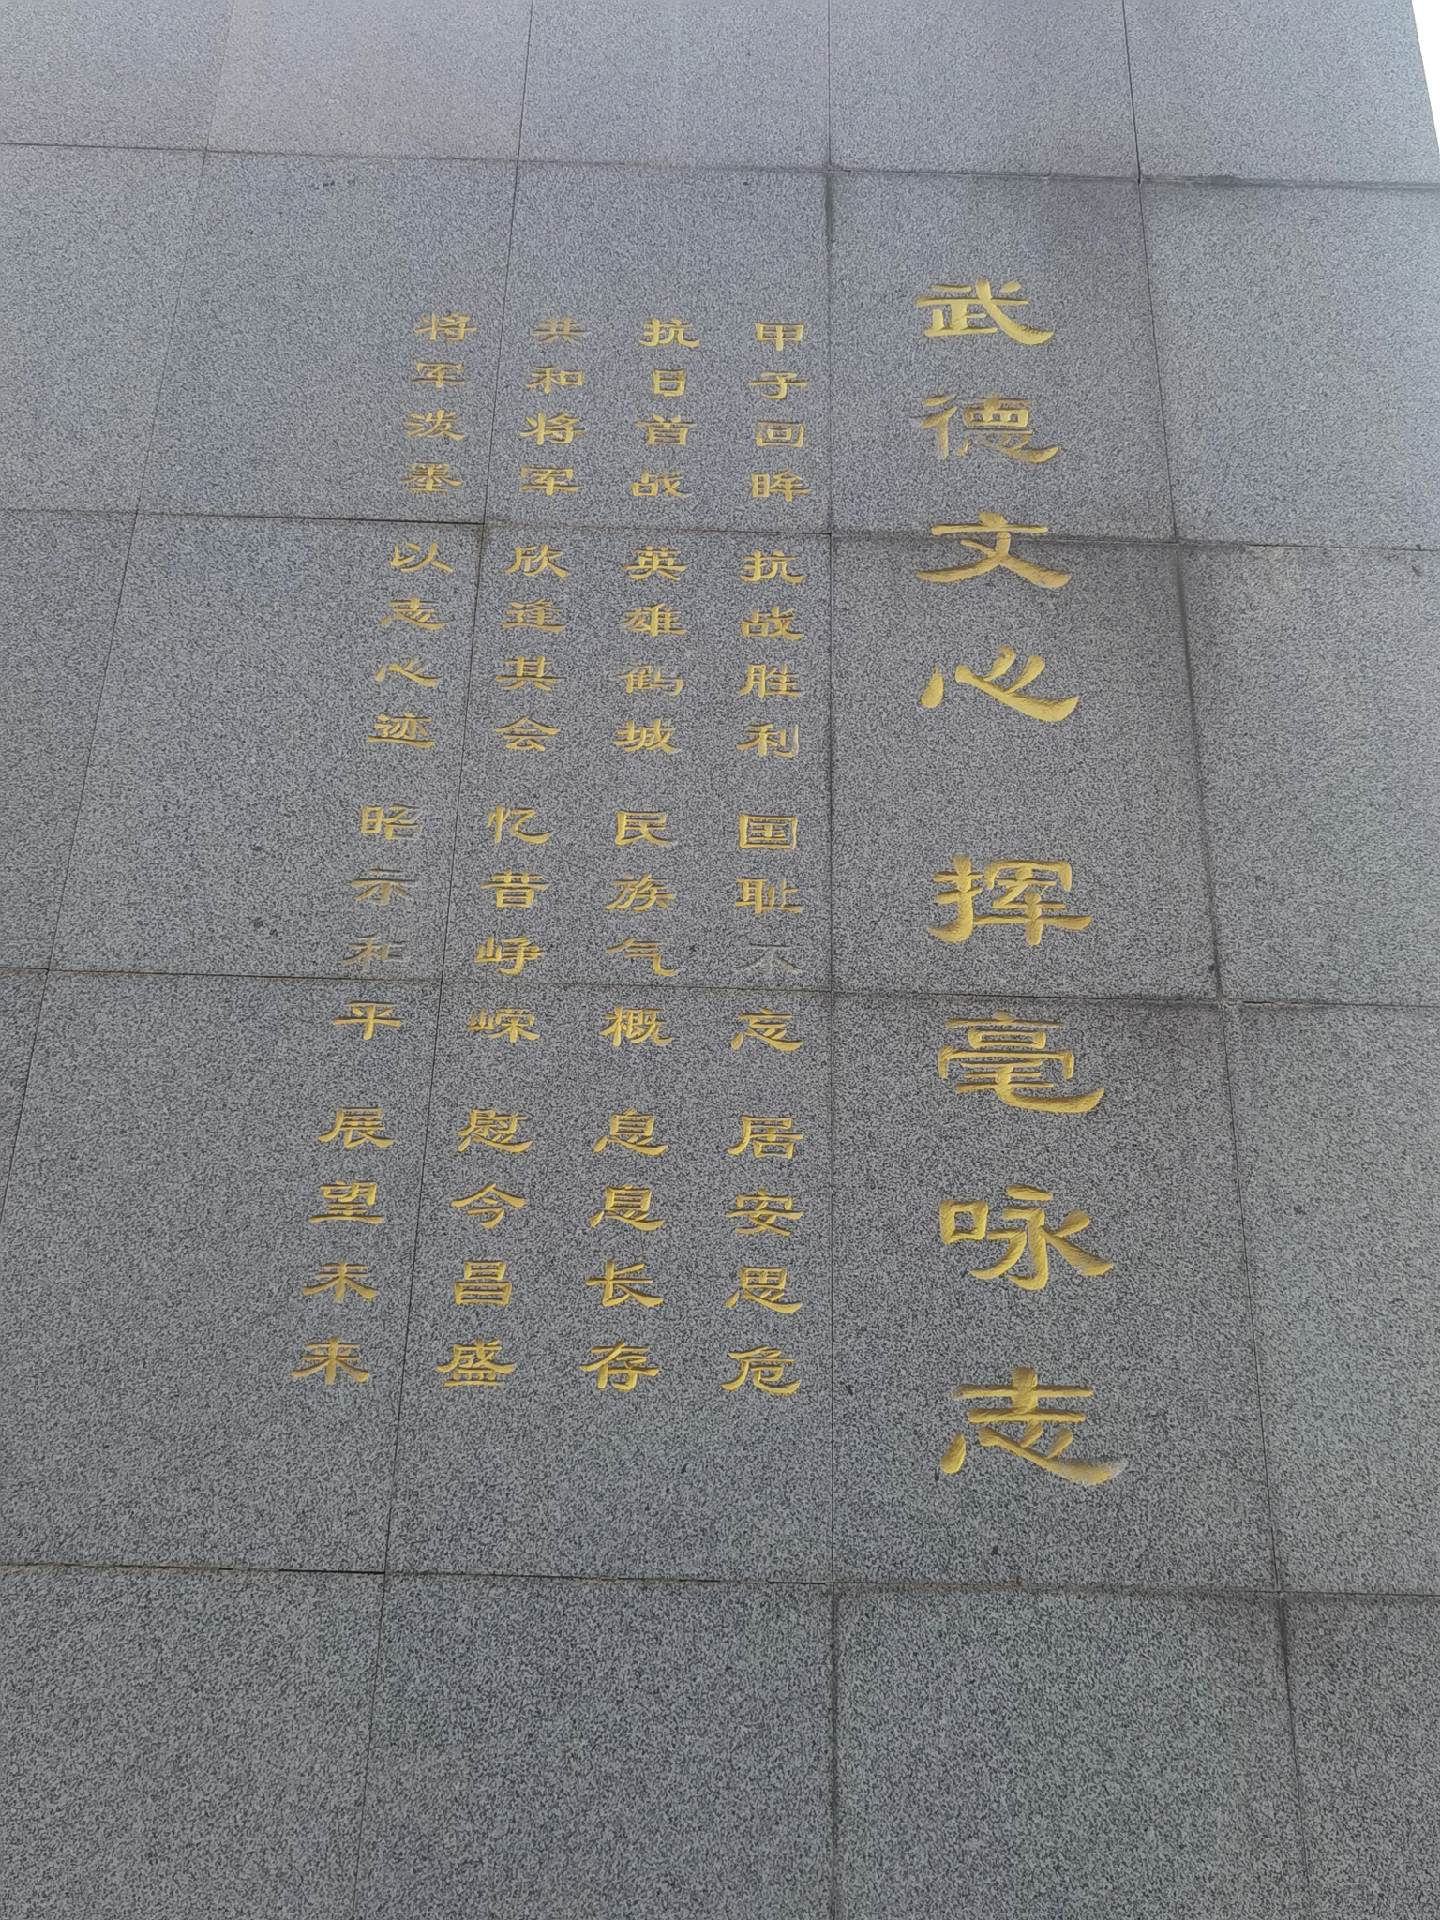 武德文心 挥毫咏志
甲子回眸 抗战胜利 国耻不忘 居安思危
抗日首战 英雄鹤城 民族气概 息息长存
共和将军 欣逢其会 忆昔峥嵘 慰今昌盛
将军泼墨 以志心迹 昭示和平 展望未来